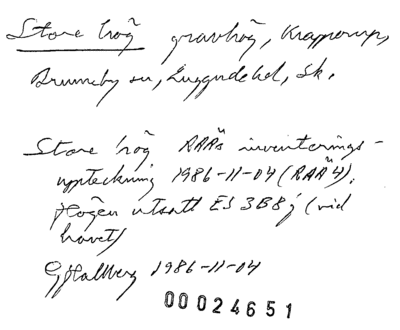 Store hög gravhög, Krapperup,
Brunnby sn, Luggude hd, Sk.
Store hög RAÄs inventerings-
uppteckning 1986-11-04 (RAÄ 4).
Högen utsatt EJ 3B8j (vid
havet)
G Hallberg 1986-11-04
00024651